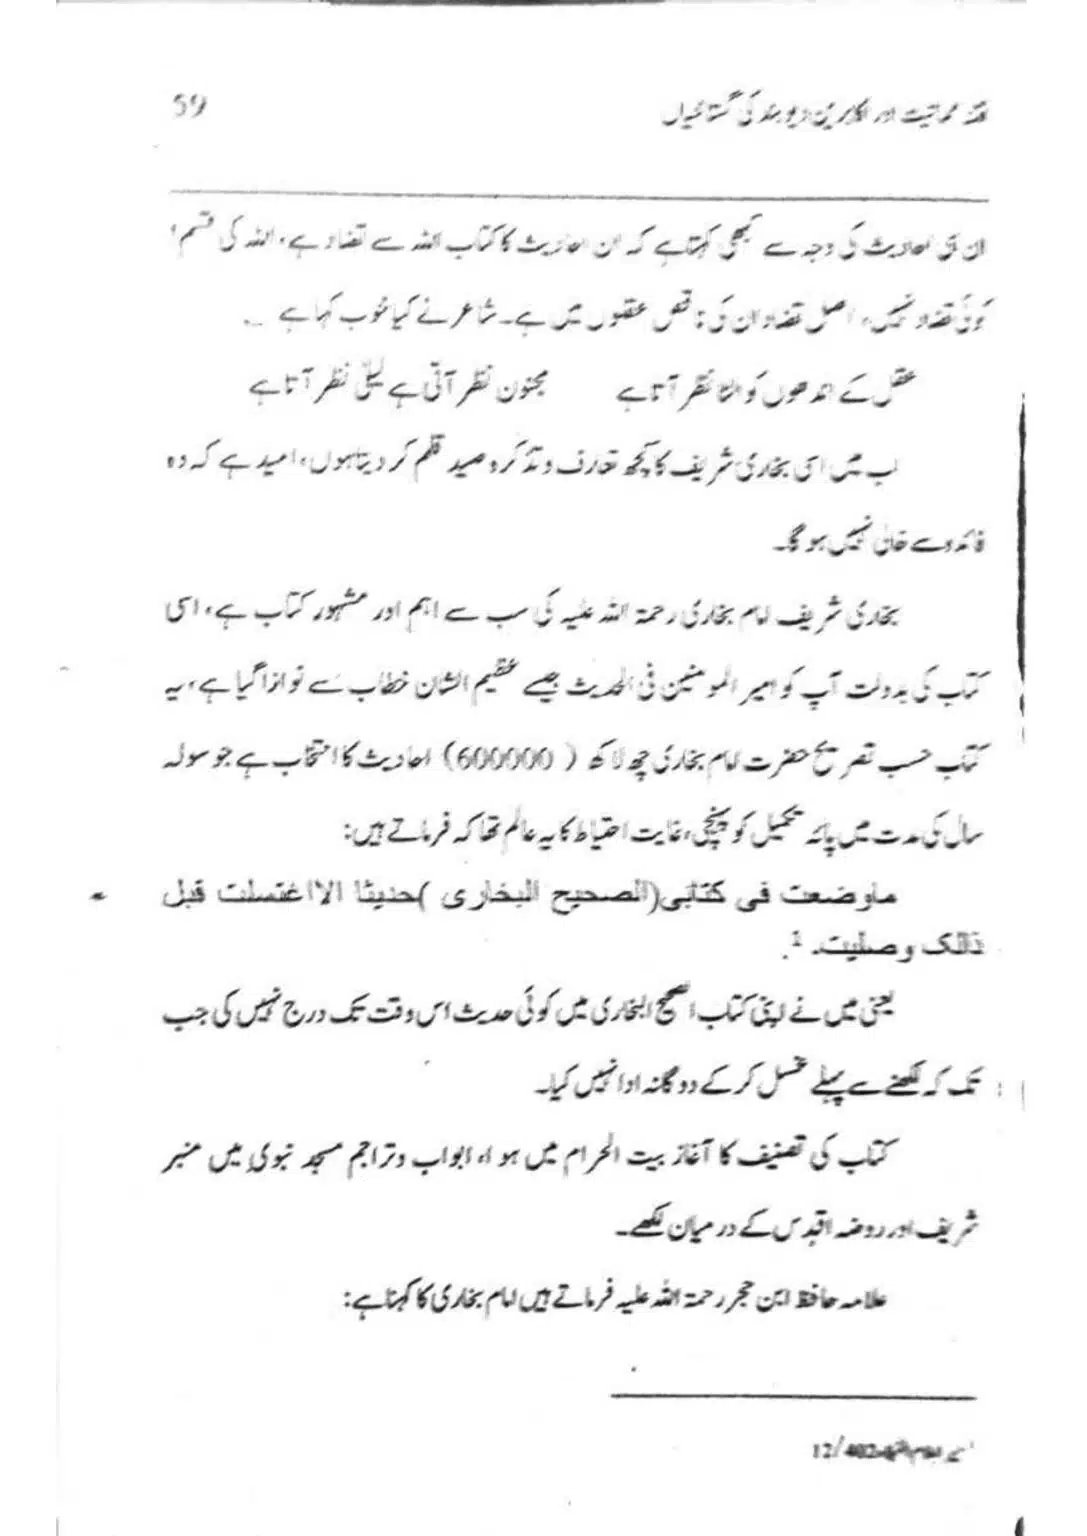 59
فتنہ مماتیت اور اکابرین دیوبند کی گستاخیاں
ان ہی احادیث کی وجہ سے کبھی کہتا ہے کہ ان احادیث کا کتاب اللہ سے تضاد ہے، اللہ کی قسم!
کوئی تضاد نہیں، اصل تضاد ان کی ناقص عقلوں میں ہے۔ شاعر نے کیا خوب کہا ہے
عقل کے اندھوں کو الٹا نظر آتا ہے مجنون نظر آتی ہے لیلیٰ نظر آتا ہے
اب میں اسی بخاری شریف کا کچھ تعارف و تذکرہ صید قلم کر دیتا ہوں، امید ہے کہ وہ
فائدہ سے خالی نہیں ہو گا۔
بخاری شریف امام بخاری رحمۃ اللہ علیہ کی سب سے اہم اور مشہور کتاب ہے، اسی
کتاب کی بدولت آپ کو امیر المومنین فی الحدیث جیسے عظیم الشان خطاب سے نوازا گیا ہے، یہ
کتاب حسب تصریح حضرت امام بخاری چھ لاکھ (600000) احادیث کا انتخاب ہے جو سولہ
سال کی مدت میں پائہ تکمیل کو پہنچی، غایت احتیاط کا یہ عالم تھا کہ فرماتے ہیں:
ماوضعت فی کتابی(الصحیح البخاری )حدیثا الااغتسلت قبل
ذالک وصلیت۔ 1.
یعنی میں نے اپنی کتاب الصحیح البخاری میں کوئی حدیث اس وقت تک درج نہیں کی جب
تک کہ لکھنے سے پہلے غسل کر کے دوگانہ ادا نہیں کیا۔
کتاب کی تصنیف کا آغاز بیت الحرام میں ہوا، ابواب و تراجم مسجد نبوی میں منبر
شریف اور روضہ اقدس کے درمیان لکھے۔
علامہ حافظ ابن حجر رحمۃ اللہ علیہ فرماتے ہیں امام بخاری کا کہنا ہے:
12/402